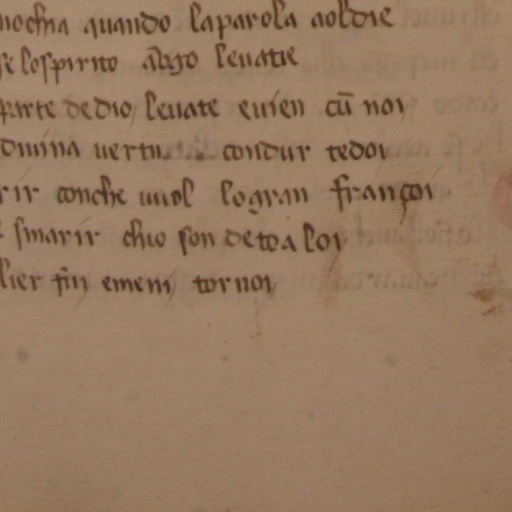 quando laparola aoldie
lospirito leuatie
parte dedio leuate euien cū noi
diuina uertu condur tedoi
rir conche uuol logran françoi
smarir chio son detoaloi
lier fin emeni tornoi